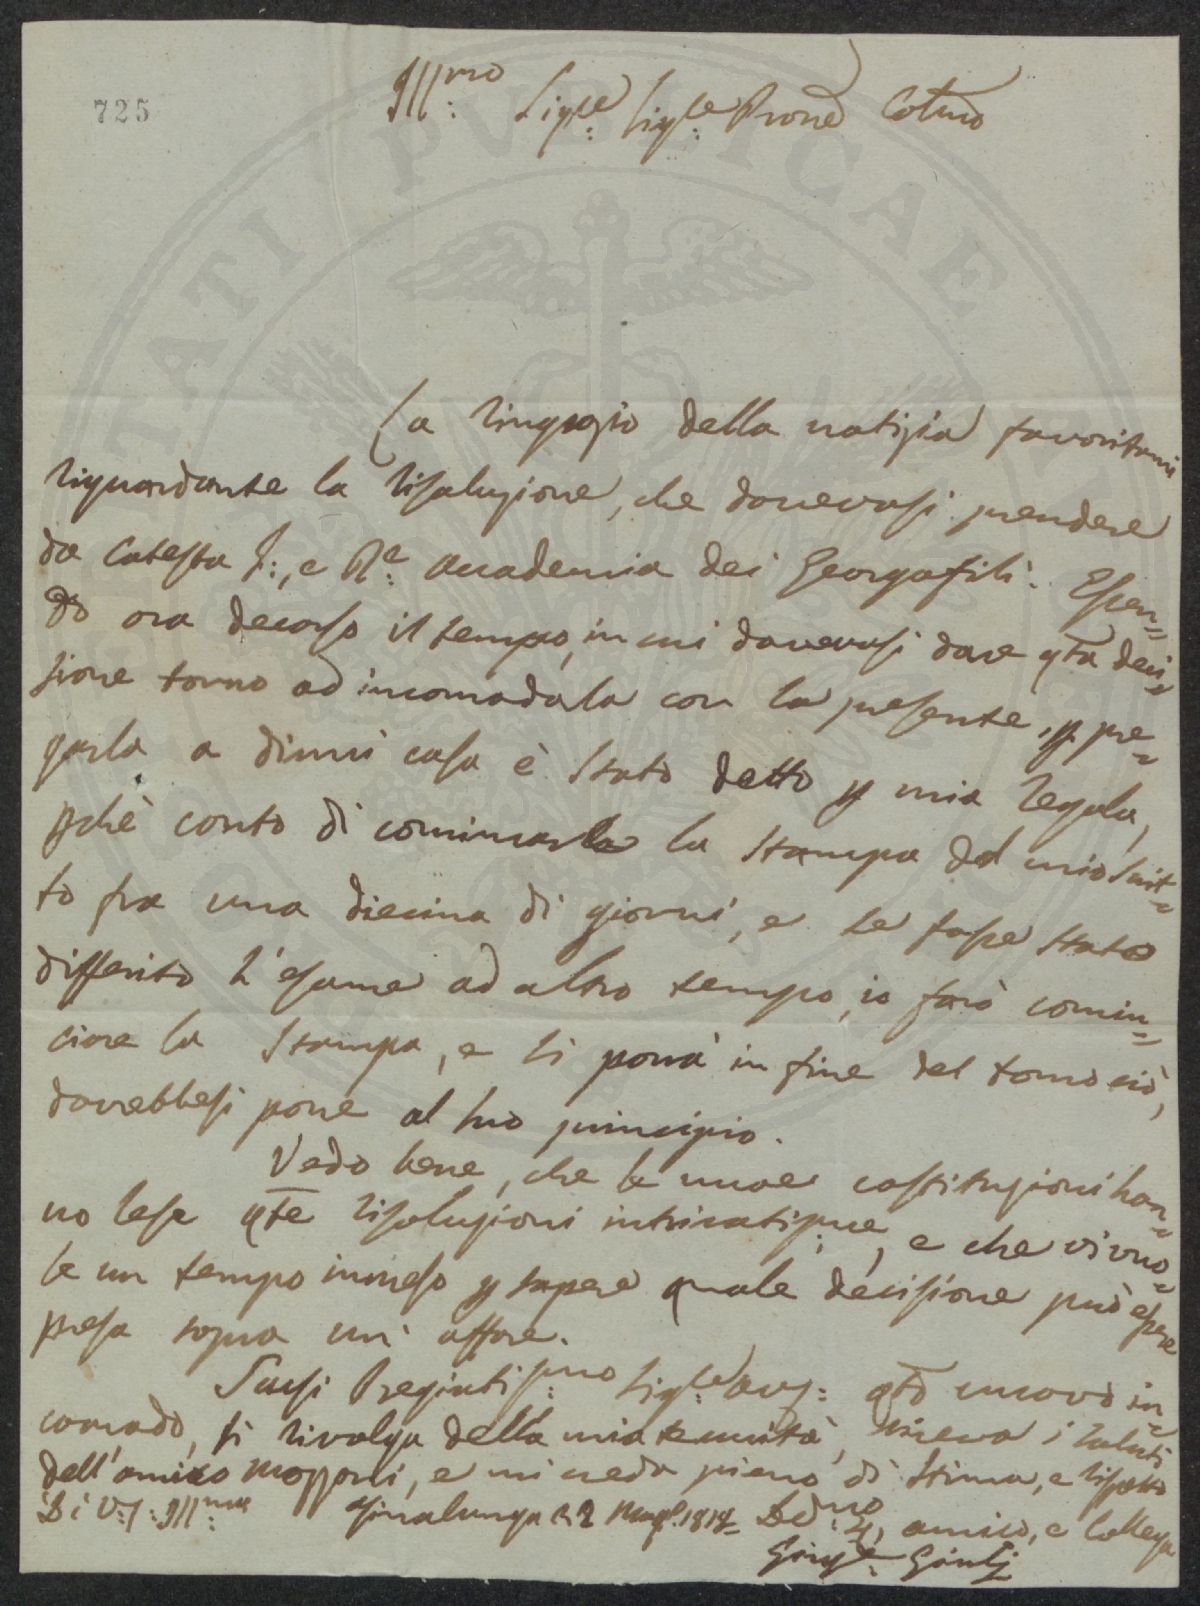 725
Ill:mo Sig:re Sig:re Prone Col:mo
La ringrazio della notizia favoritami
riguardante la risoluzione, che dovevasi prendere
da Cotesta I:, e R:e Accademia dei Georgofili. Essen=
do ora decorso il tempo, in cui dovevasi dare qta deci=
sione torno ad incomodarla con la presente, p pre=
garla a dirmi cosa è stato detto p mia regola,
pchè conto di cominciarla la stampa del mio scrit=
to fra una diecina di giorni, e se fosse stato
differito l'esame ad altro tempo, io farò comin=
ciare la stampa, e si porrà in fine del tomo ciò,
dovrebbesi porre al suo principio.
Vedo bene, che le nuove costituzioni han=
no rese qte risoluzioni intricatissme, e che vi vuo=
le un tempo immenso p sapere quale decisione può essere
presa sopra un' affare.
Scusi Pregiatissmo Sig:re qto nuovo in=
comodo, si rivalga della mia tenuità, riceva i saluti
dell'amico, e mi creda pieno di stima, e rispetto
Di V:S: Ill:ma Sinalunga 22 1818 amico, e Collega
Gius:e Giulj